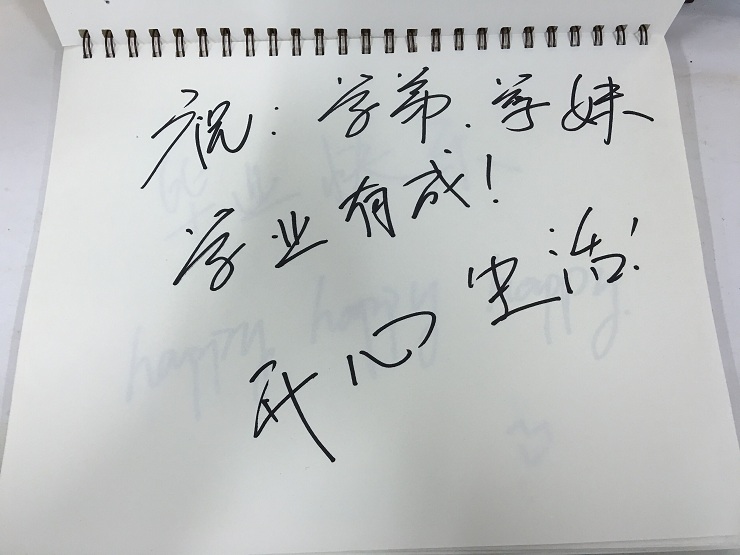 祝:学弟.学妹
学业有成!
开心生活!
happy happy happy.